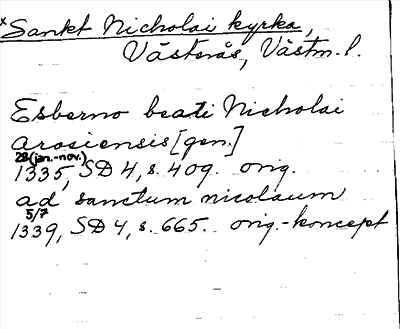 x Sankt Nicholai kyrka,
Västerås, Västm. l.
Esberno beati Nicholai
arosiensis [gen.]
28 (jan.-nov.)
1335, SD 4, s. 409. orig.
ad sanctum nicolaum
5/7
1339, SD 4, s. 665. orig.-koncept